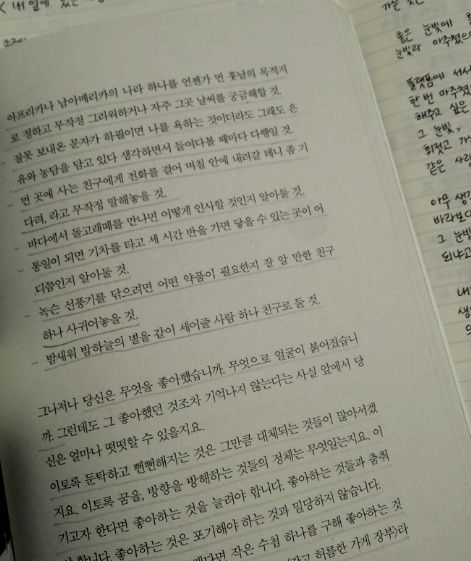 < 내 옆에 있는
아프리카나 남아메리카의 나라 하나를 언젠가 먼 훗날의 목적지
로 정하고 무작정 그리워하거나 자주 그곳 날씨를 궁금해할 것.
잘못 보내온 문자가 하필이면 나를 욕하는 것이더라도 그래도 은
유와 농담을 담고 있다 생각하면서 들여다볼 때마다 다행일 것.
먼 곳에 사는 친구에게 전화를 걸어 며칠 안에 내려갈 테니 좀 기
다려, 라고 무작정 말해놓을 것.
바다에서 돌고래떼를 만나면 어떻게 인사할 것인지 알아둘 것.
통일이 되면 기차를 타고 세 시간 반을 가면 닿을 수 있는 곳이 어
디쯤인지 알아둘 것.
녹슨 선풍기를 닦으려면 어떤 약품이 필요한지 잘 알 만한 친구
하나 사귀어놓을 것.
밤새워 밤하늘의 별을 같이 세어줄 사람 하나 친구로 둘 것.
그나저나 당신은 무엇을 좋아했습니까. 무엇으로 얼굴이 붉어졌습니
까. 그런데도 그 좋아했던 것조차 기억나지 않는다는 사실 앞에서 당
신은 얼마나 떳떳할 수 있을지요.
이토록 둔탁하고 뻔뻔해지는 것은 그만큼 대체되는 것들이 많아서겠
지요. 이토록 꿈을, 방향을 방해하는 것들의 정체는 무엇일는지요. 이
기고자 한다면 좋아하는 것을 늘려야 합니다. 좋아하는 것들과 춤춰
합니다. 좋아하는 것은 포기해야 하는 것과 밀당하지 않습니다.
다면 작은 수첩 하나를 구해 좋아하는 것
허름한 가게 장부)라
가는 것은
좋은 눈빛에
눈빛과 마주쳤으
플랫폼에 서서
한번 마주쳤
해주고 싶은
그 눈빛,
뒤젖고 가
같은 사람
아무 생각
바라보
그 눈빛
되냐고
내
생
의